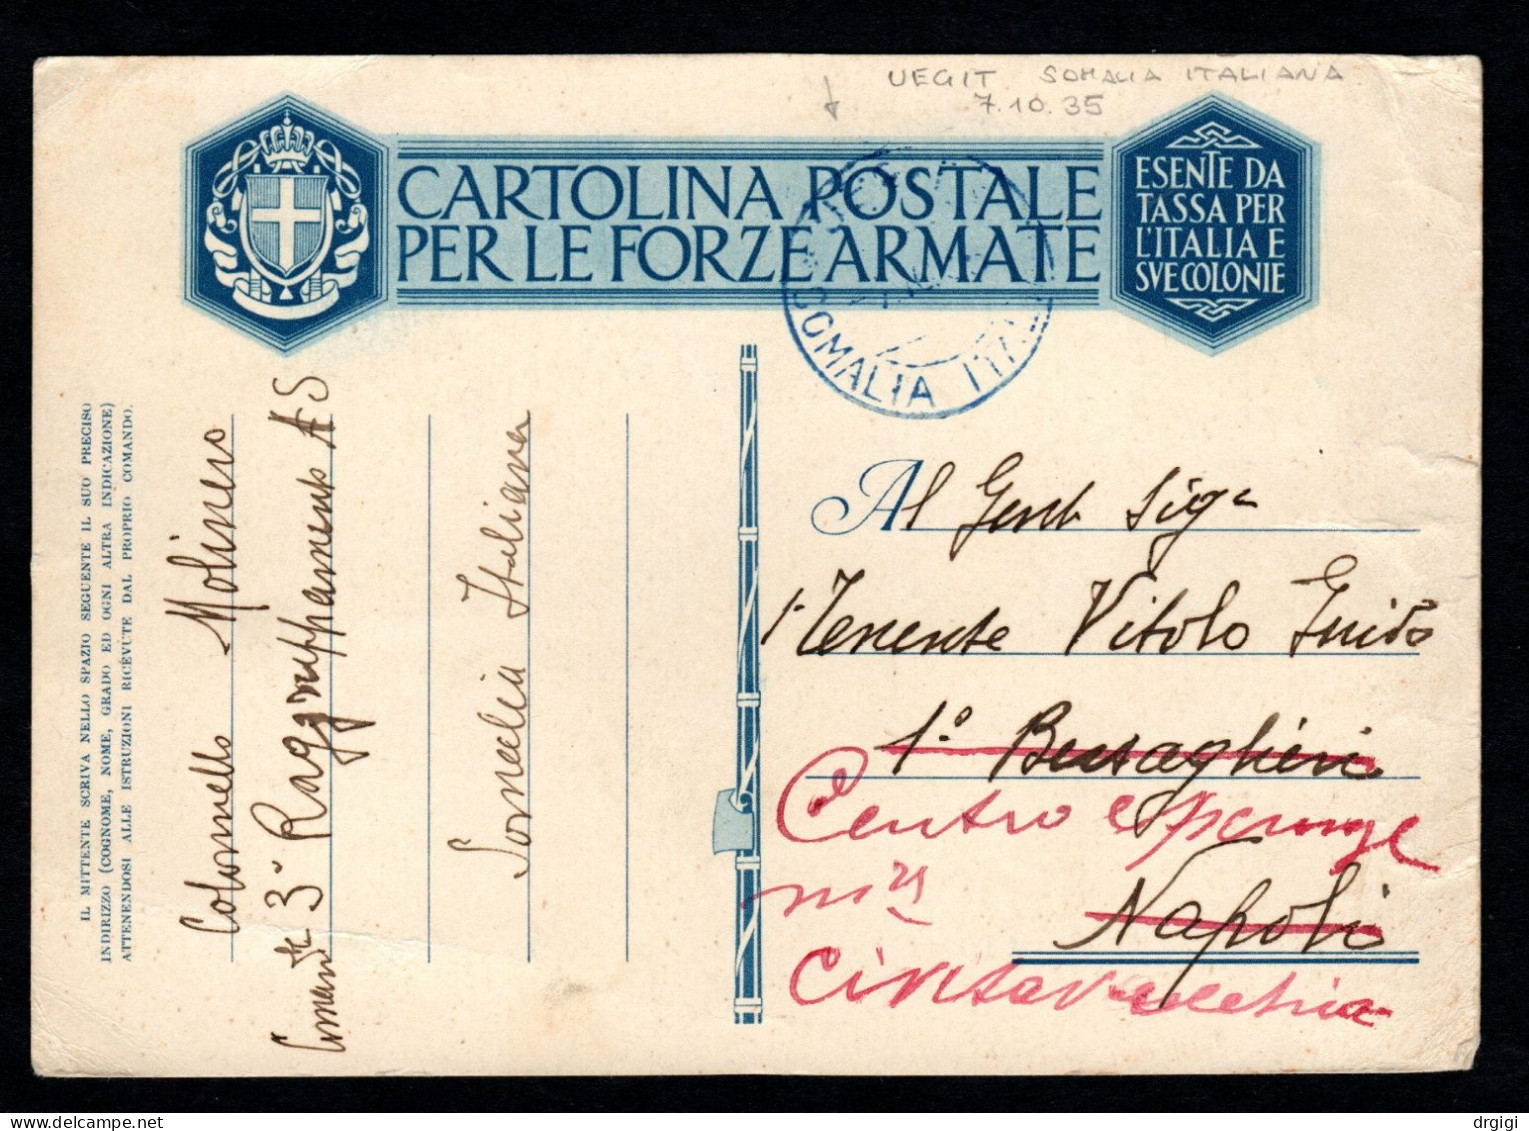 UEGIT SOMALIA ITALIANA
7.10.35
CARTOLINA POSTALE
PER LE FORZE ARMATE
ESENTE DA
TASSA PER
L'ITALIA E
SVE COLONIE
SOMALIA ITAL
IL MITTENTE SCRIVA NELLO SPAZIO SEGUENTE IL SUO PRECISO
INDIRIZZO (COGNOME, NOME, GRADO ED OGNI ALTRA INDICAZIONE)
ATTENENDOSI ALLE ISTRUZIONI RICEVUTE DAL PROPRIO COMANDO.
Colonnello Molinero
3° Raggruppamento A S
Somalia Italiana
Al Gent Sig
1° Tenente Vitolo Guido
1° Bersaglieri
Centro
Napoli
Civitavecchia
drgigi